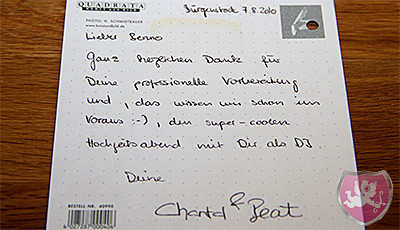 QUADRATA
PHOTO: H. SCHMIDTBAUER
www.kunstundbild.de
Bürgenstock 7.8.2010
Lieber Benno
Ganz herzlichen Dank für
Deine professionelle Vorbereitung
und, das wissen wir schon im
Voraus :-), den super-coolen
Hochzeitsabend mit Dir als DJ.
Deine
Chantal & Beat
BESTELL-NR. 40990